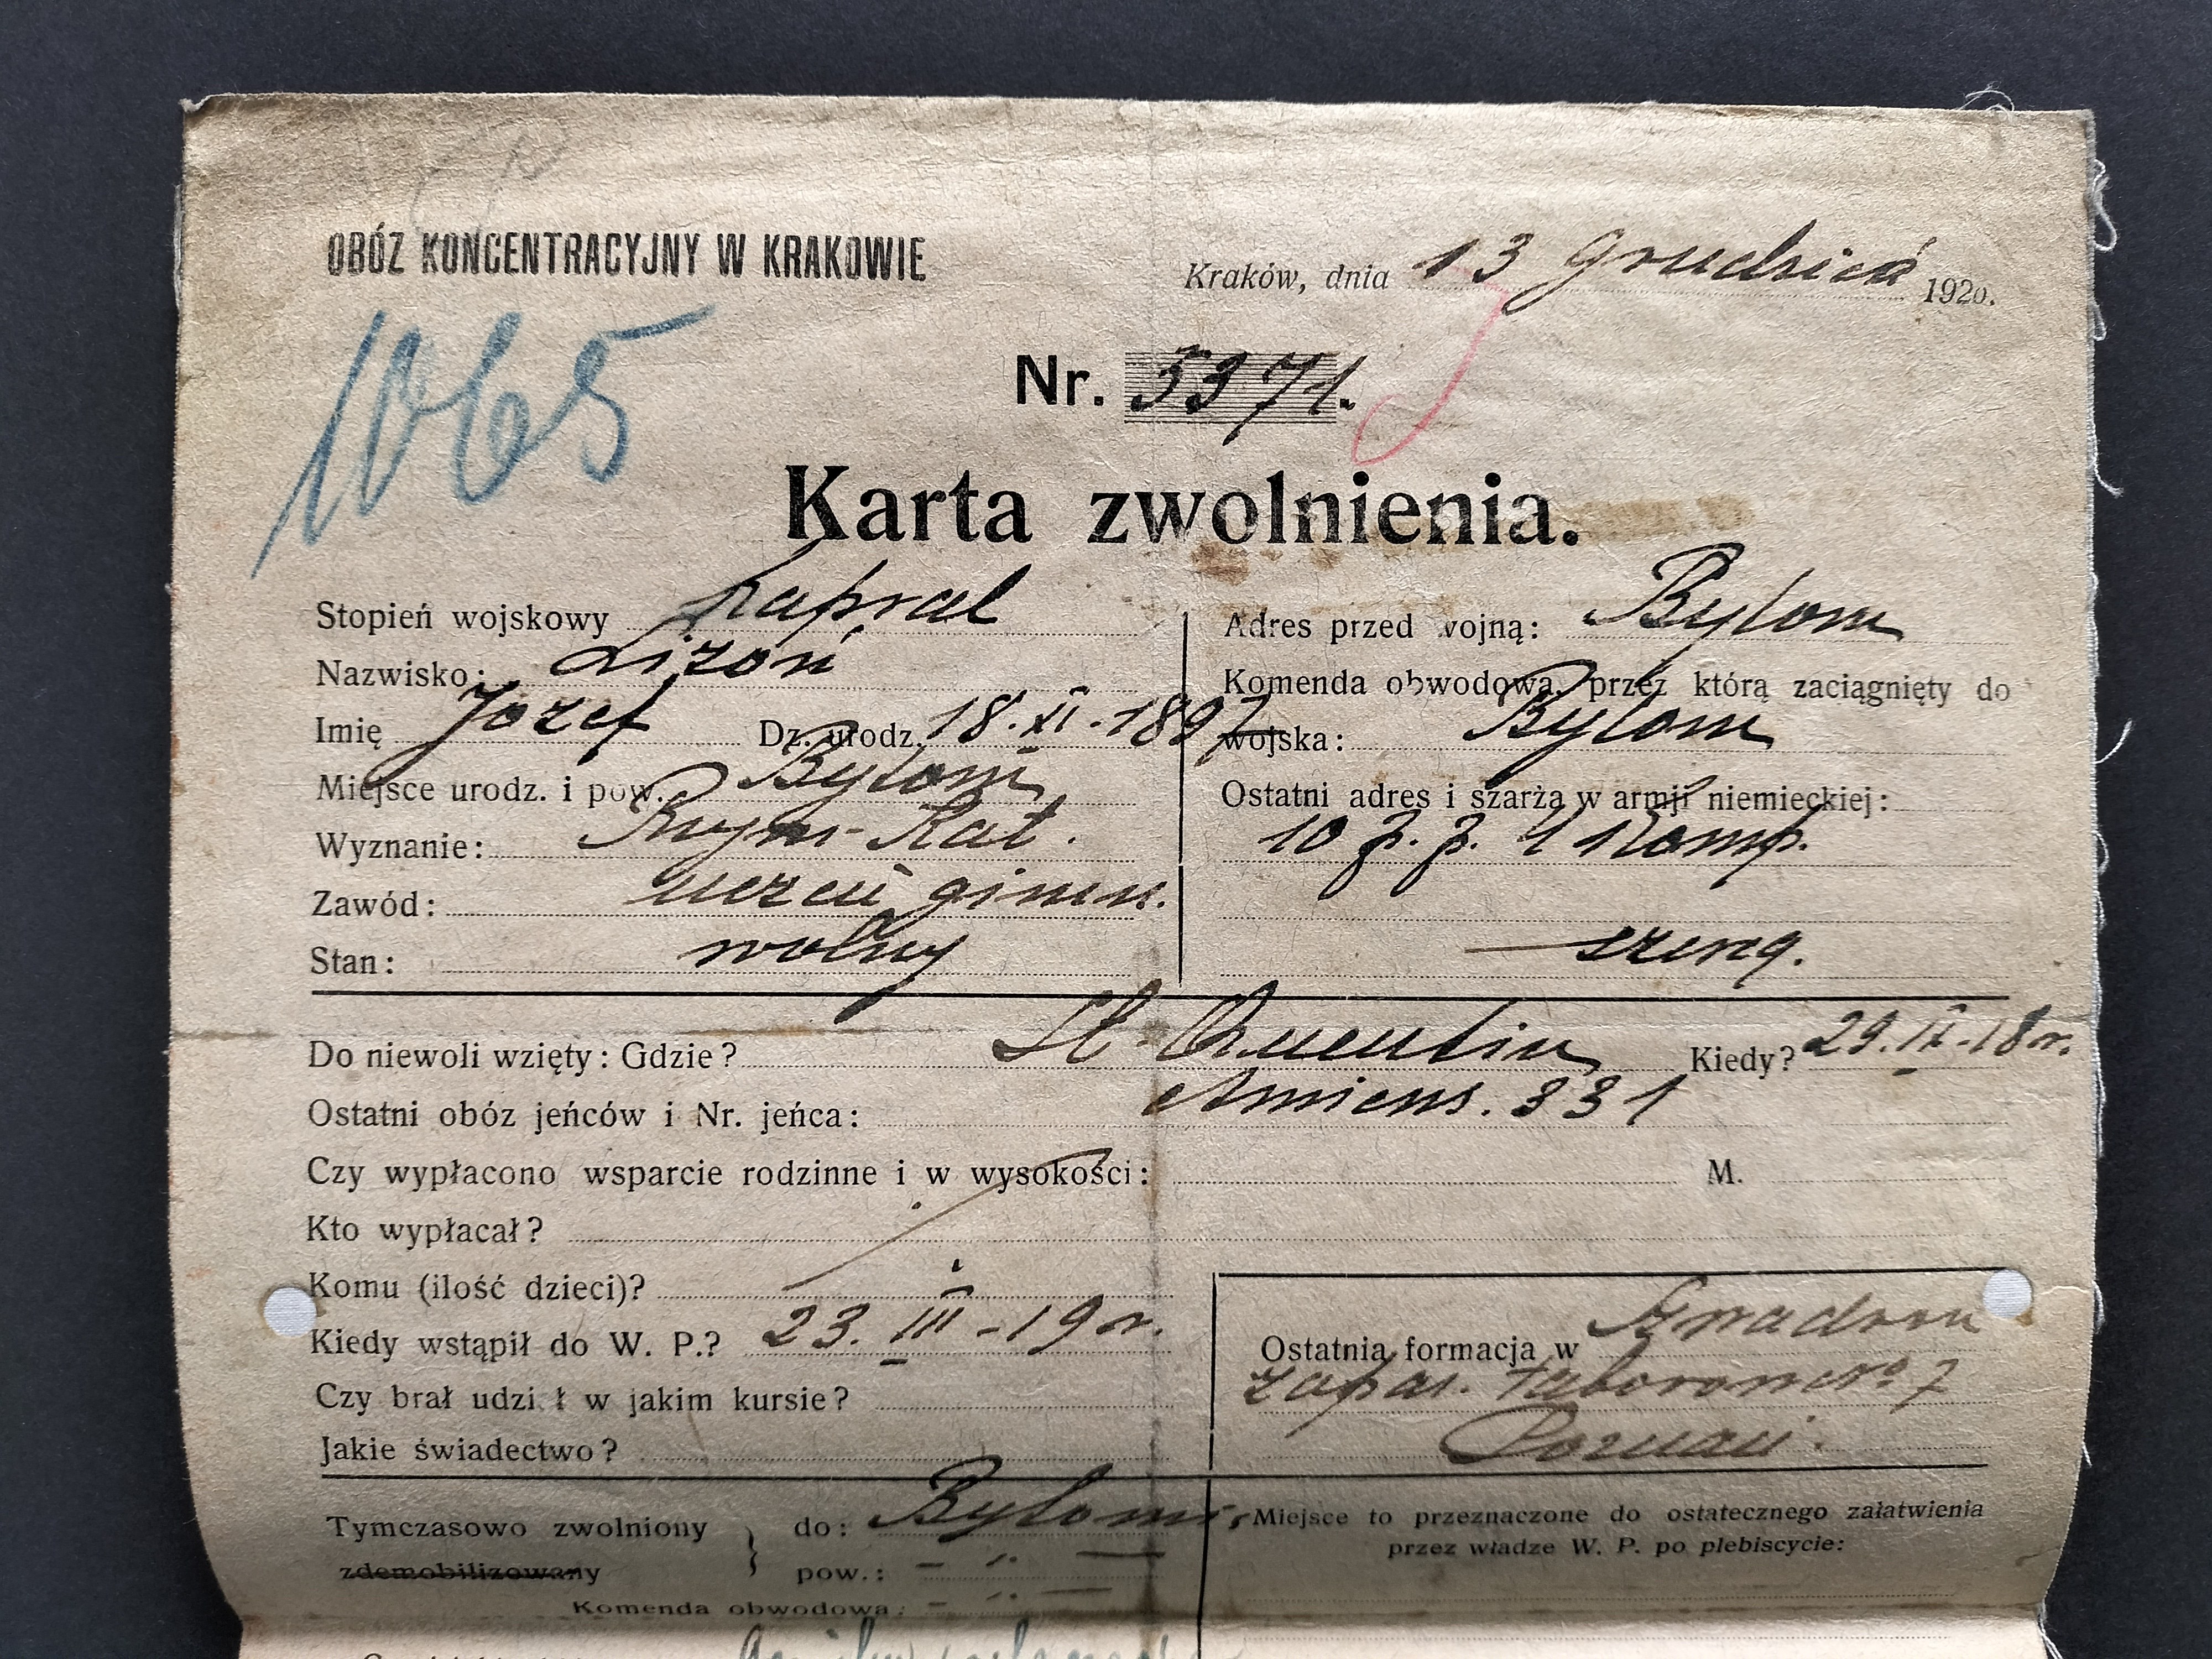 OBÓZ KONCENTRACYJNY W KRAKOWIE
Kraków, dnia 13 Grudzień 1920.
1065
Nr. 5371.
Karta zwolnienia.
Stopień wojskowy Kapral
Nazwisko: Lizoń
Imię Józef Dz. urodz. 18.XI.-1897
Miejsce urodz. i pow. Bytom
Wyznanie: Rzym-Kat.
Zawód: uczeń gimn.
Stan: wolny
Adres przed wojną: Bytom
Komenda obwodowa, przez którą zaciągnięty do
wojska: Bytom
Ostatni adres i szarża w armji niemieckiej:
10 p. p. 4 Komp.
szereg.
Do niewoli wzięty: Gdzie? St. Quentin Kiedy? 29.IX.-18 r.
Ostatni obóz jeńców i Nr. jeńca: Amiens. 331
Czy wypłacono wsparcie rodzinne i w wysokości: M.
Kto wypłacał?
Komu (ilość dzieci)?
Kiedy wstąpił do W. P.? 23. III-19 r.
Czy brał udzi ł w jakim kursie?
Jakie świadectwo?
Ostatnia formacja w Szwadron
zapas. taborow № 7
Poznań.
Tymczasowo zwolniony
zdemobilizowany
do: Bytomia,
pow.:
Komenda obwodowa:
Miejsce to przeznaczone do ostatecznego załatwienia
przez władze W. P. po plebiscycie: